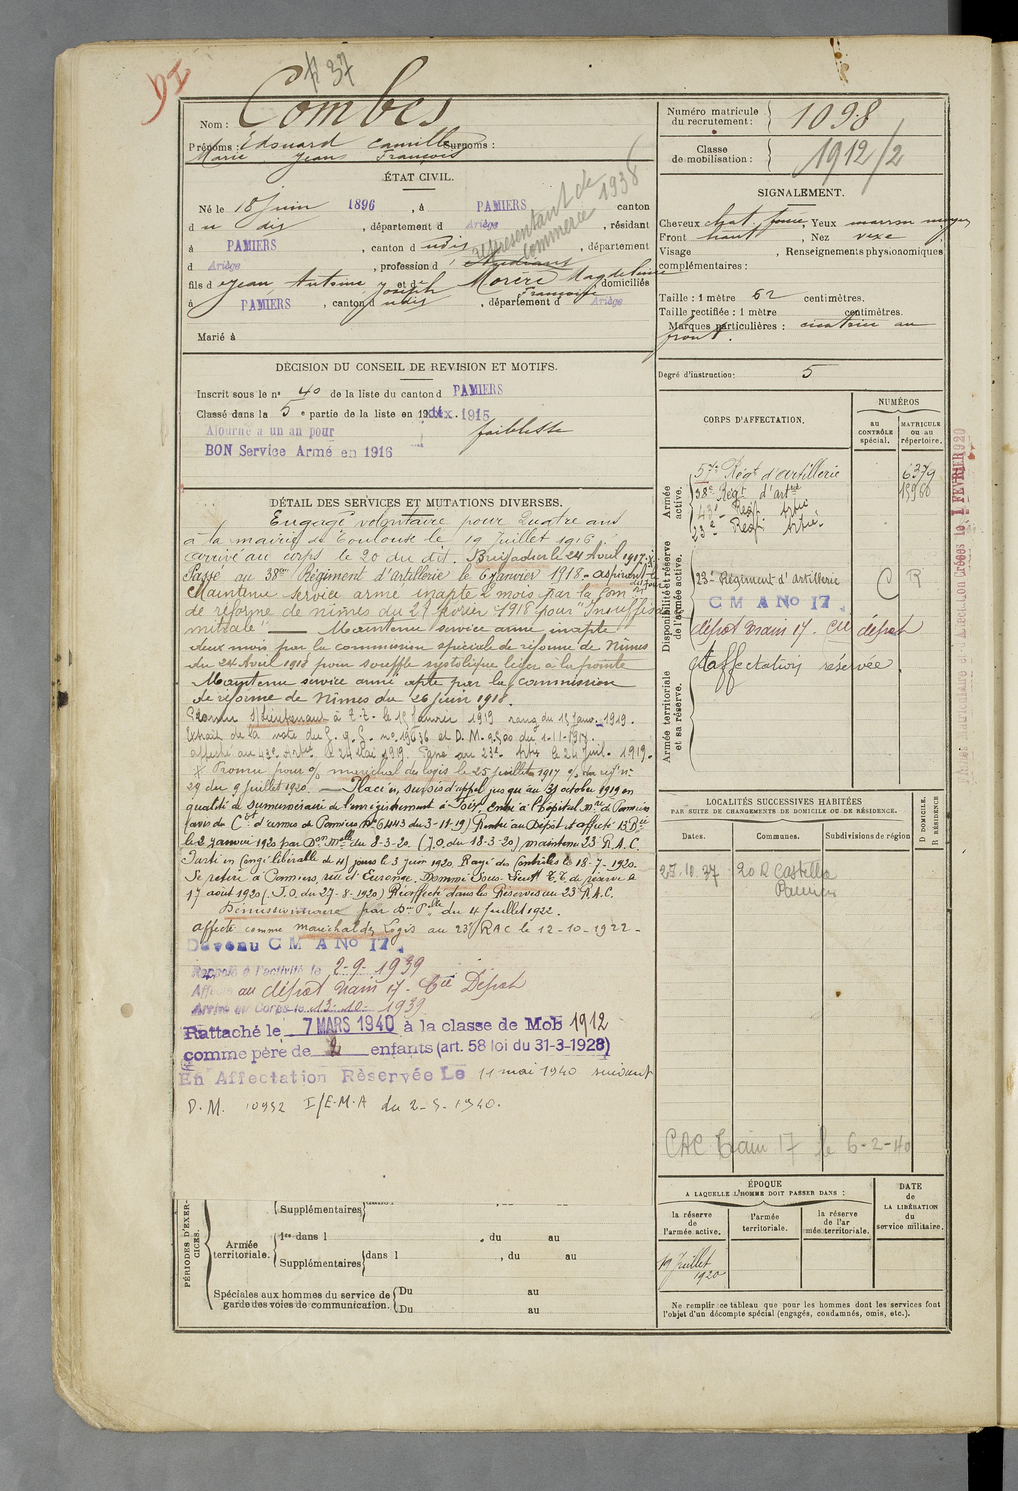 # 37
Nom : Combes
Prénoms : Edouard Camille Surnoms :
Marie Jean François
ÉTAT CIVIL.
Né le 18 Juin 1896, à PAMIERS canton
d u dis, département d Ariège, résidant
à PAMIERS, canton d udis, département
d Ariège, profession d' étudiant
représentant de commerce 1938
fils d e Jean Antoine Joseph et de Morère Magdeleine Françoise domiciliés
à PAMIERS, canton d udis, département d Ariège
Marié à
DÉCISION DU CONSEIL DE REVISION ET MOTIFS.
Inscrit sous le n° 40 de la liste du canton d PAMIERS
Classé dans la 5 e partie de la liste en 1915
Ajourné a un an pour faiblesse
BON Service Armé en 1916
DÉTAIL DES SERVICES ET MUTATIONS DIVERSES.
Engagé volontaire pour Quatre ans
à la mairie de Toulouse le 19 Juillet 1916
arrivé au corps le 20 du dit. Brigadier le 24 Avril 1917. X
Passé au 38me Régiment d'artillerie le 6 Janvier 1918 - aspirant
Maintenu service armé inapte 2 mois par la Com
de réforme de nimes du 21 février 1918 pour "Insuffisance
mitrale". — Maintenu service armé inapte
deux mois par la commission spéciale de réforme de Nimes
du 24 Avril 1918 pour souffle systolique léger à la pointe
Maintenu service armé apte par la commission
de réforme de Nimes du 26 Juin 1918.
Promu S/Lieutenant à T.T. le 15 Janvier 1919 rang du 15 Janv. 1919.
Extrait de la note du G.Q.G. no 19636 et D.M. 9500 du 1-11-1917.
affecté au 43e Artie le 24 Mai 1919. Passé au 23e Artie le 24 Juil. 1919.
X Promu pour % maréchal des logis le 25 juillet 1917 %
29 du 9 Juillet 1920. — Placé en sursis d'appel jusqu'au 31 octobre 1919 en
qualité de surnuméraire de l'enregistrement à Foix. Entré à l'Hopital mre de Pamiers
(avis du Ct d'armes de Pamiers No 6443 du 3-11-19) Rentré au Dépôt et affecté 13 Bie
le 2 Janvier 1920 par Don Mlle du 8-3-20. (J.O. du 18-3-20) maintenu 23 R.A.C.
Parti en Congé libérable de 45 jours le 3 Juin 1920. Rayé des Contrôles le 18-7-1920.
Se retire à Pamiers, rue d'Eurenge. Nommé Sous-Lieutt T.T. de réserve le
17 août 1920 (J.O. du 27-8-1920) Réaffecté dans les Réserves au 23e R.A.C.
Démissionnaire par Don Plle du 4 Juillet 1922.
affecté comme maréchal des Logis au 23e RAC le 12-10-1922-
Devenu C M A No 17.
Rappelé à l'activité le 2-9-1939
Affecté au dépôt train 17. Cie Dépôt
Arrivé au Corps le 13-10-1939
Rattaché le 7 MARS 1940 à la classe de Mob 1912
comme père de 2 enfants (art. 58 loi du 31-3-1928)
En Affectation Rèservée Le 11 mai 1940 suivant
D.M. 10952 I/E.M.A du 2-5-1940.
PÉRIODES D'EXERCICES.
Supplémentaires
Armée territoriale.
1re dans l , du au
Supplémentaires dans l , du au
Spéciales aux hommes du service de garde des voies de communication.
Du au
Du au
Numéro matricule du recrutement : 1098
Classe de mobilisation : 1912/2
SIGNALEMENT.
Cheveux chat. foncé, Yeux marron moyen
Front haut, Nez vexe
Visage , Renseignements physionomiques
complémentaires :
Taille : 1 mètre 62 centimètres.
Taille rectifiée : 1 mètre centimètres.
Marques particulières : cicatrice au
front.
Degré d'instruction : 5
CORPS D'AFFECTATION.
NUMÉROS
au CONTRÔLE spécial.
MATRICULE ou au répertoire.
Armée active.
57e Régt d'artillerie 6379
38e Régt d'artie 15960
43e Regt Artie
23e Regt Artie
Disponibilité et réserve de l'armée active.
23e Régiment d'artillerie C R
C M A No 17.
dépôt train 17. Cie dépôt
Armée territoriale et sa réserve.
affectation réservée
1 FEVRIER 1920
LOCALITÉS SUCCESSIVES HABITÉES
PAR SUITE DE CHANGEMENTS DE DOMICILE OU DE RÉSIDENCE.
Dates. Communes. Subdivisions de région
D DOMICILE. R RÉSIDENCE
27.10.37 20 R Castella
Pamiers
CAC Train 17 le 6-2-40
ÉPOQUE
A LAQUELLE L'HOMME DOIT PASSER DANS :
la réserve de l'armée active.
l'armée territoriale.
la réserve de l'armée territoriale.
DATE de LA LIBÉRATION du service militaire.
19 Juillet 1920
Ne remplir ce tableau que pour les hommes dont les services font
l'objet d'un décompte spécial (engagés, condamnés, omis, etc.).